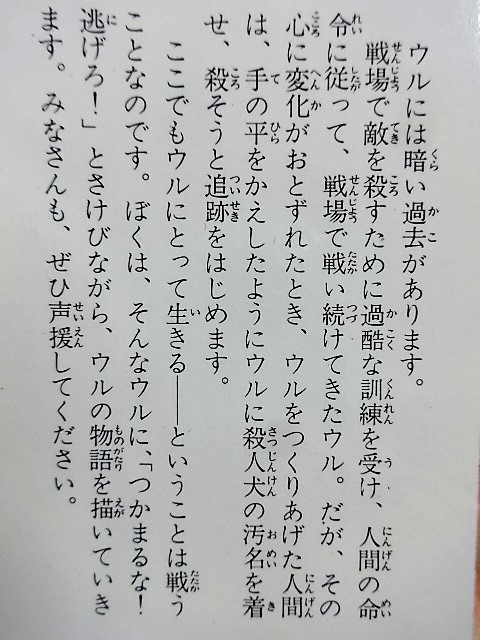 ウルには暗い過去があります。
戦場で敵を殺すために過酷な訓練を受け、人間の命
令に従って、戦場で戦い続けてきたウル。だが、その
心に変化がおとずれたとき、ウルをつくりあげた人間
は、手の平をかえしたようにウルに殺人犬の汚名を着
せ、殺そうと追跡をはじめます。
ここでもウルにとって生きる――ということは戦う
ことなのです。ぼくは、そんなウルに、「つかまるな！
逃げろ！」とさけびながら、ウルの物語を描いていき
ます。みなさんも、ぜひ声援してください。